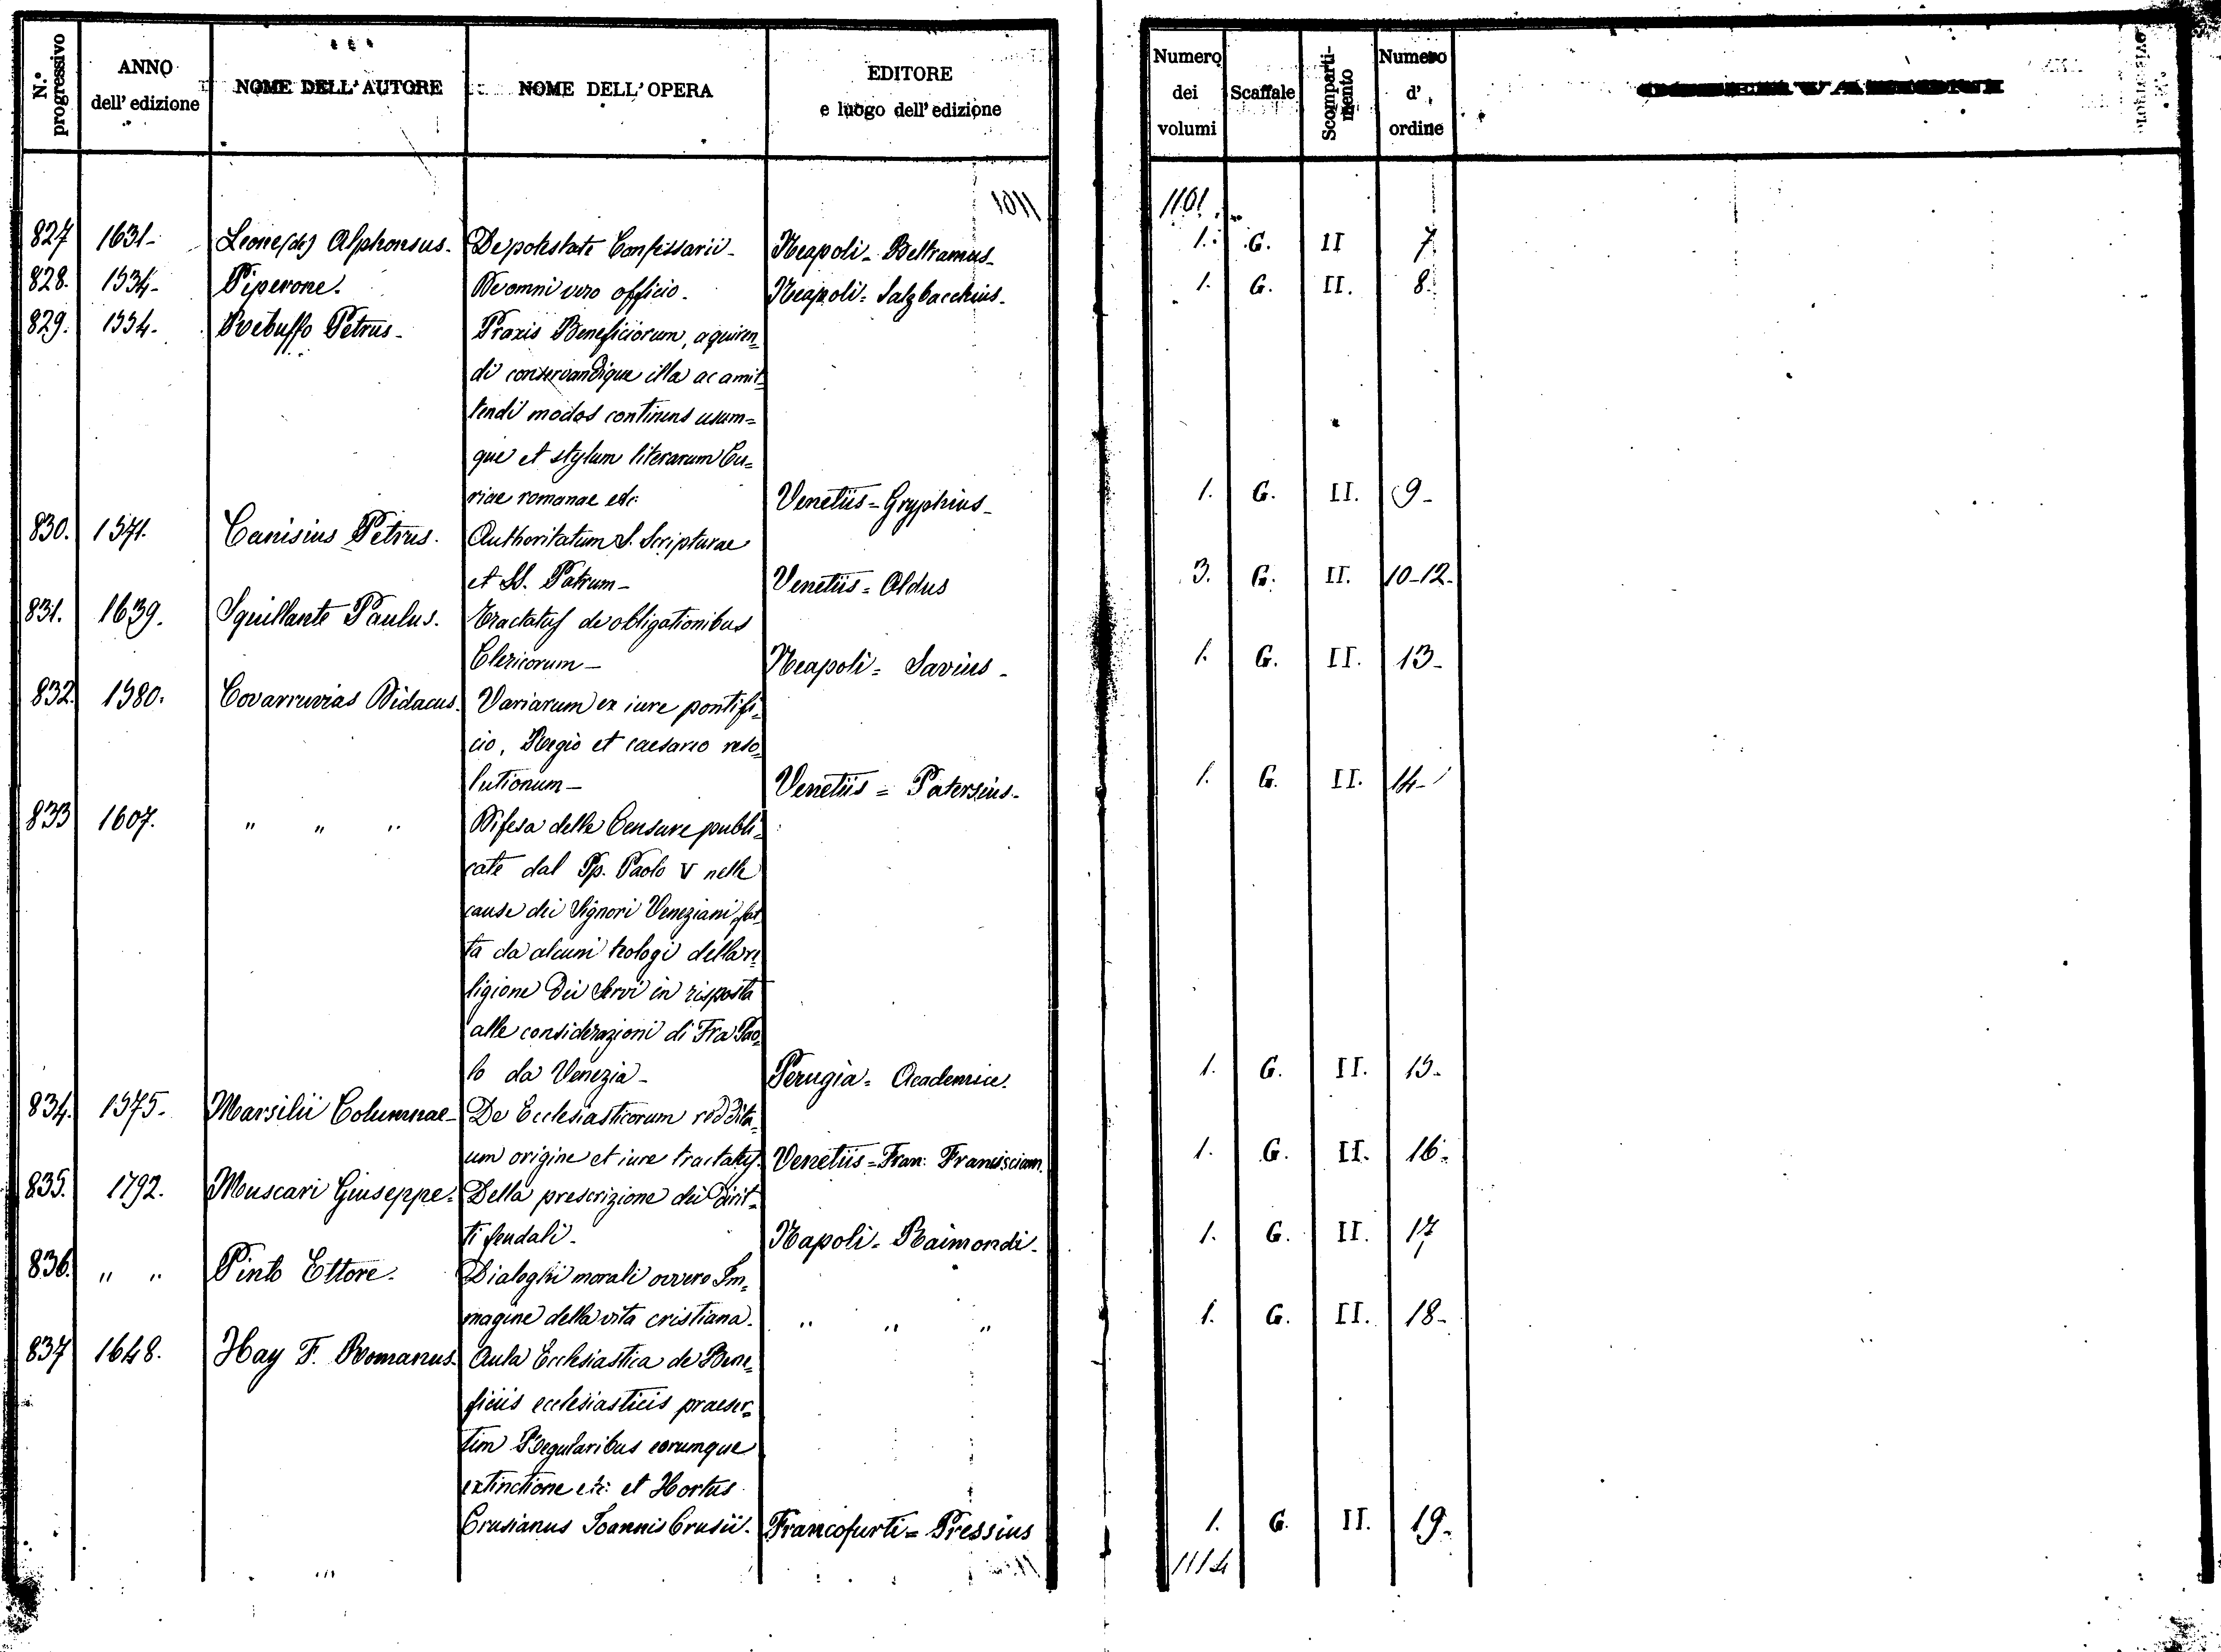 N.° progressivo
ANNO dell' edizione
NOME DELL' AUTORE
NOME DELL' OPERA
EDITORE e luogo dell' edizione
Numero dei volumi
Scaffale
Scomparti-mento
Numero d' ordine
1101
827 1631- Leone (de) Alphonsus. De potestate Confessarii- Neapoli- Beltramus- 1. G. II 7.
828. 1534- Piperone. De omni vero officio. Neapoli= Salzbacchius- 1. G. II. 8.
829. 1554. Rebuffo Petrus- Praxis Beneficiorum, aquiren=
di conservandique illa ac amit=
tendi modos continens usum=
que et stylum literarum Cu=
riae romanae etc: Venetiis=Gryphius- 1. G. II. 9-
830. 1571. Canisius Petrus. Authoritatum S. Scripturae
et SS. Patrum- Venetiis= Aldus 3. G. II. 10-12.
831. 1639. Squillante Paulus. Tractatus de obligationibus
Clericorum- Neapoli= Savius- 1. G. II. 13-
832. 1580. Covarruvias Didacus. Variarum ex iure pontifi=
cio, Regio et caesareo reso=
lutionum- Venetiis= Patersius- 1. G. II. 14-
833 1607. " " " Difesa delle Censure publi=
cate dal Pp. Paolo V nelle
cause dei Signori Veneziani fat=
ta da alcuni teologi della re=
ligione dei Servi in risposta
alle considerazioni di Fra Pao=
lo da Venezia- Perugia= Academice. 1. G. II. 15-
834. 1575. Marsilii Columnae- De Ecclesiasticorum reddita=
um origine et iure tractatus. Venetiis=Fran: Francisciam. 1. G. II. 16-
835. 1792. Muscari Giuseppe. Della prescrizione dei dirit=
ti feudali. Napoli= Raimondi. 1. G. II. 17
836. " " Pinto Ettore. Dialoghi morali ovvero Im=
magine della vita cristiana. " " " 1. G. II. 18-
837 1648. Hay F. Romanus. Aula Ecclesiastica de Bene=
ficiis ecclesiasticis praeser=
tim Regularibus eorumque
extinctione etc: et Hortus
Crusianus Joannis Crusii. Francofurti= Pressius 1. G. II. 19-
1114